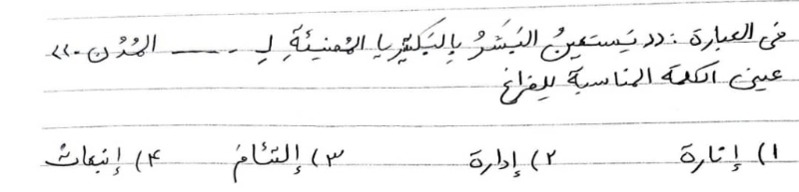 في العبارة: «يَستَعينُ البَشَرُ بِالبَكتيريا المُضيئَةِ لِـ ـــــ المُدُنِ.»
عيني الكلمة المناسبة للفراغ
۱) إنارة ۲) إدارة ۳) إلتئام ۴) إنبعاث